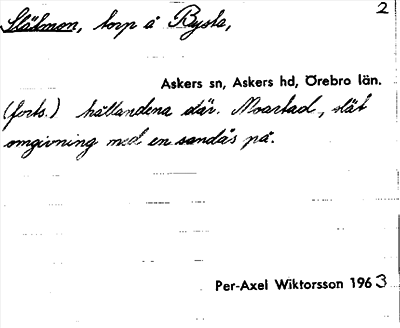 Slätmon, torp å Rysta, 2
Askers sn, Askers hd, Örebro län.
(forts.) hållandena där. Moartad, slät
omgivning med en sandås på.
Per-Axel Wiktorsson 1963